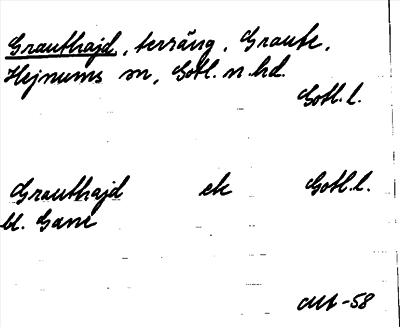 Grauthajd, terräng, Graute,
Hejnums sn, Gotl. n. hd.
Gotl. l.
Grauthajd ek Gotl. l.
bl. Gane
-58